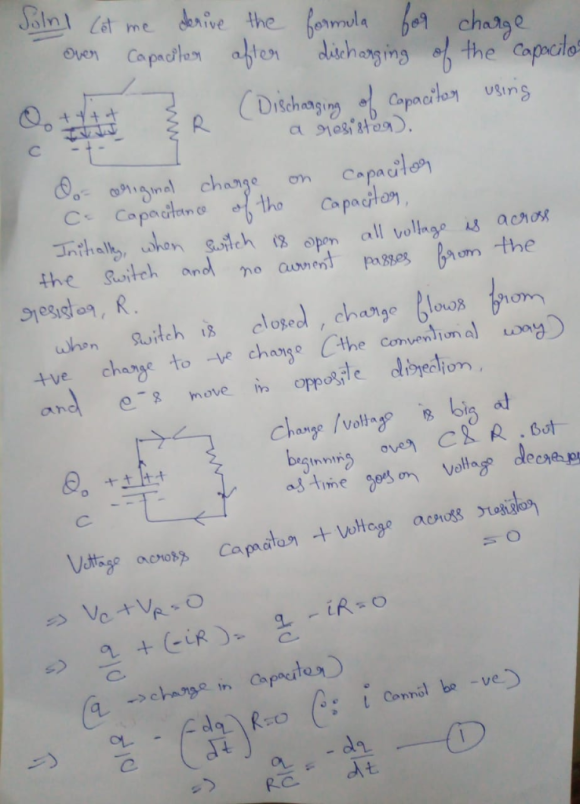 Soln1 Let me derive the formula for charge
over capacitor after discharging of the capacitor
Q₀ ++++
C - - -
R
(Discharging of capacitor using
a resistor).
Q₀ = original charge on capacitor
C = Capacitance of the capacitor.
Initially, when switch is open all voltage is across
the switch and no current passes from the
resistor, R.
When switch is closed, charge flows from
+ve charge to -ve charge (the conventional way)
and e⁻s move in opposite direction.
Q₀ ++++
C - - - -
Charge/voltage is big at
beginning over C & R. But
as time goes on voltage decreases
Voltage across capacitor + Voltage across resistor
= 0
⇒ Vc + VR = 0
⇒ q/C + (-iR) = q/C - iR = 0
(q → charge in capacitor)
⇒ q/C - (-dq/dt) R = 0 (∵ i cannot be -ve)
⇒ q/RC = -dq/dt — ①